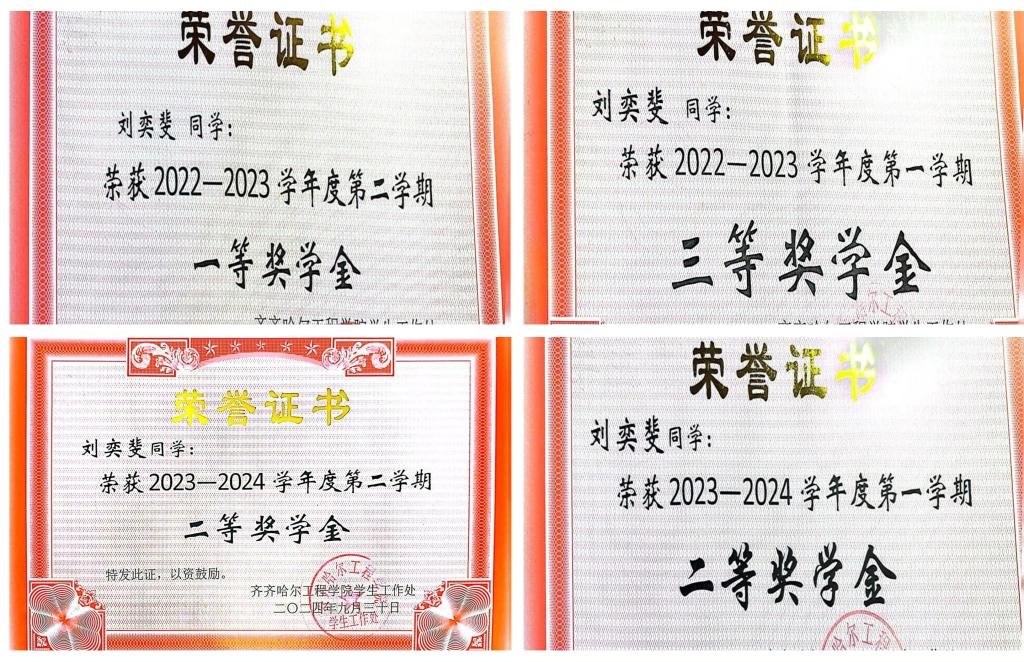 荣誉证书
刘奕斐 同学：
荣获 2022—2023 学年度第二学期
一等奖学金
齐齐哈尔工程学院学生工作处
荣誉证书
刘奕斐 同学：
荣获 2022—2023 学年度第一学期
三等奖学金
哈尔工程
齐齐哈尔工程学院学生工作处
荣誉证书
刘奕斐同学：
荣获 2023—2024 学年度第二学期
二等奖学金
特发此证，以资鼓励。
齐齐哈尔工程学院学生工作处
二〇二四年九月三十日
哈尔工程
学生工作处
荣誉证书
刘奕斐同学：
荣获 2023—2024 学年度第一学期
二等奖学金
哈尔工程